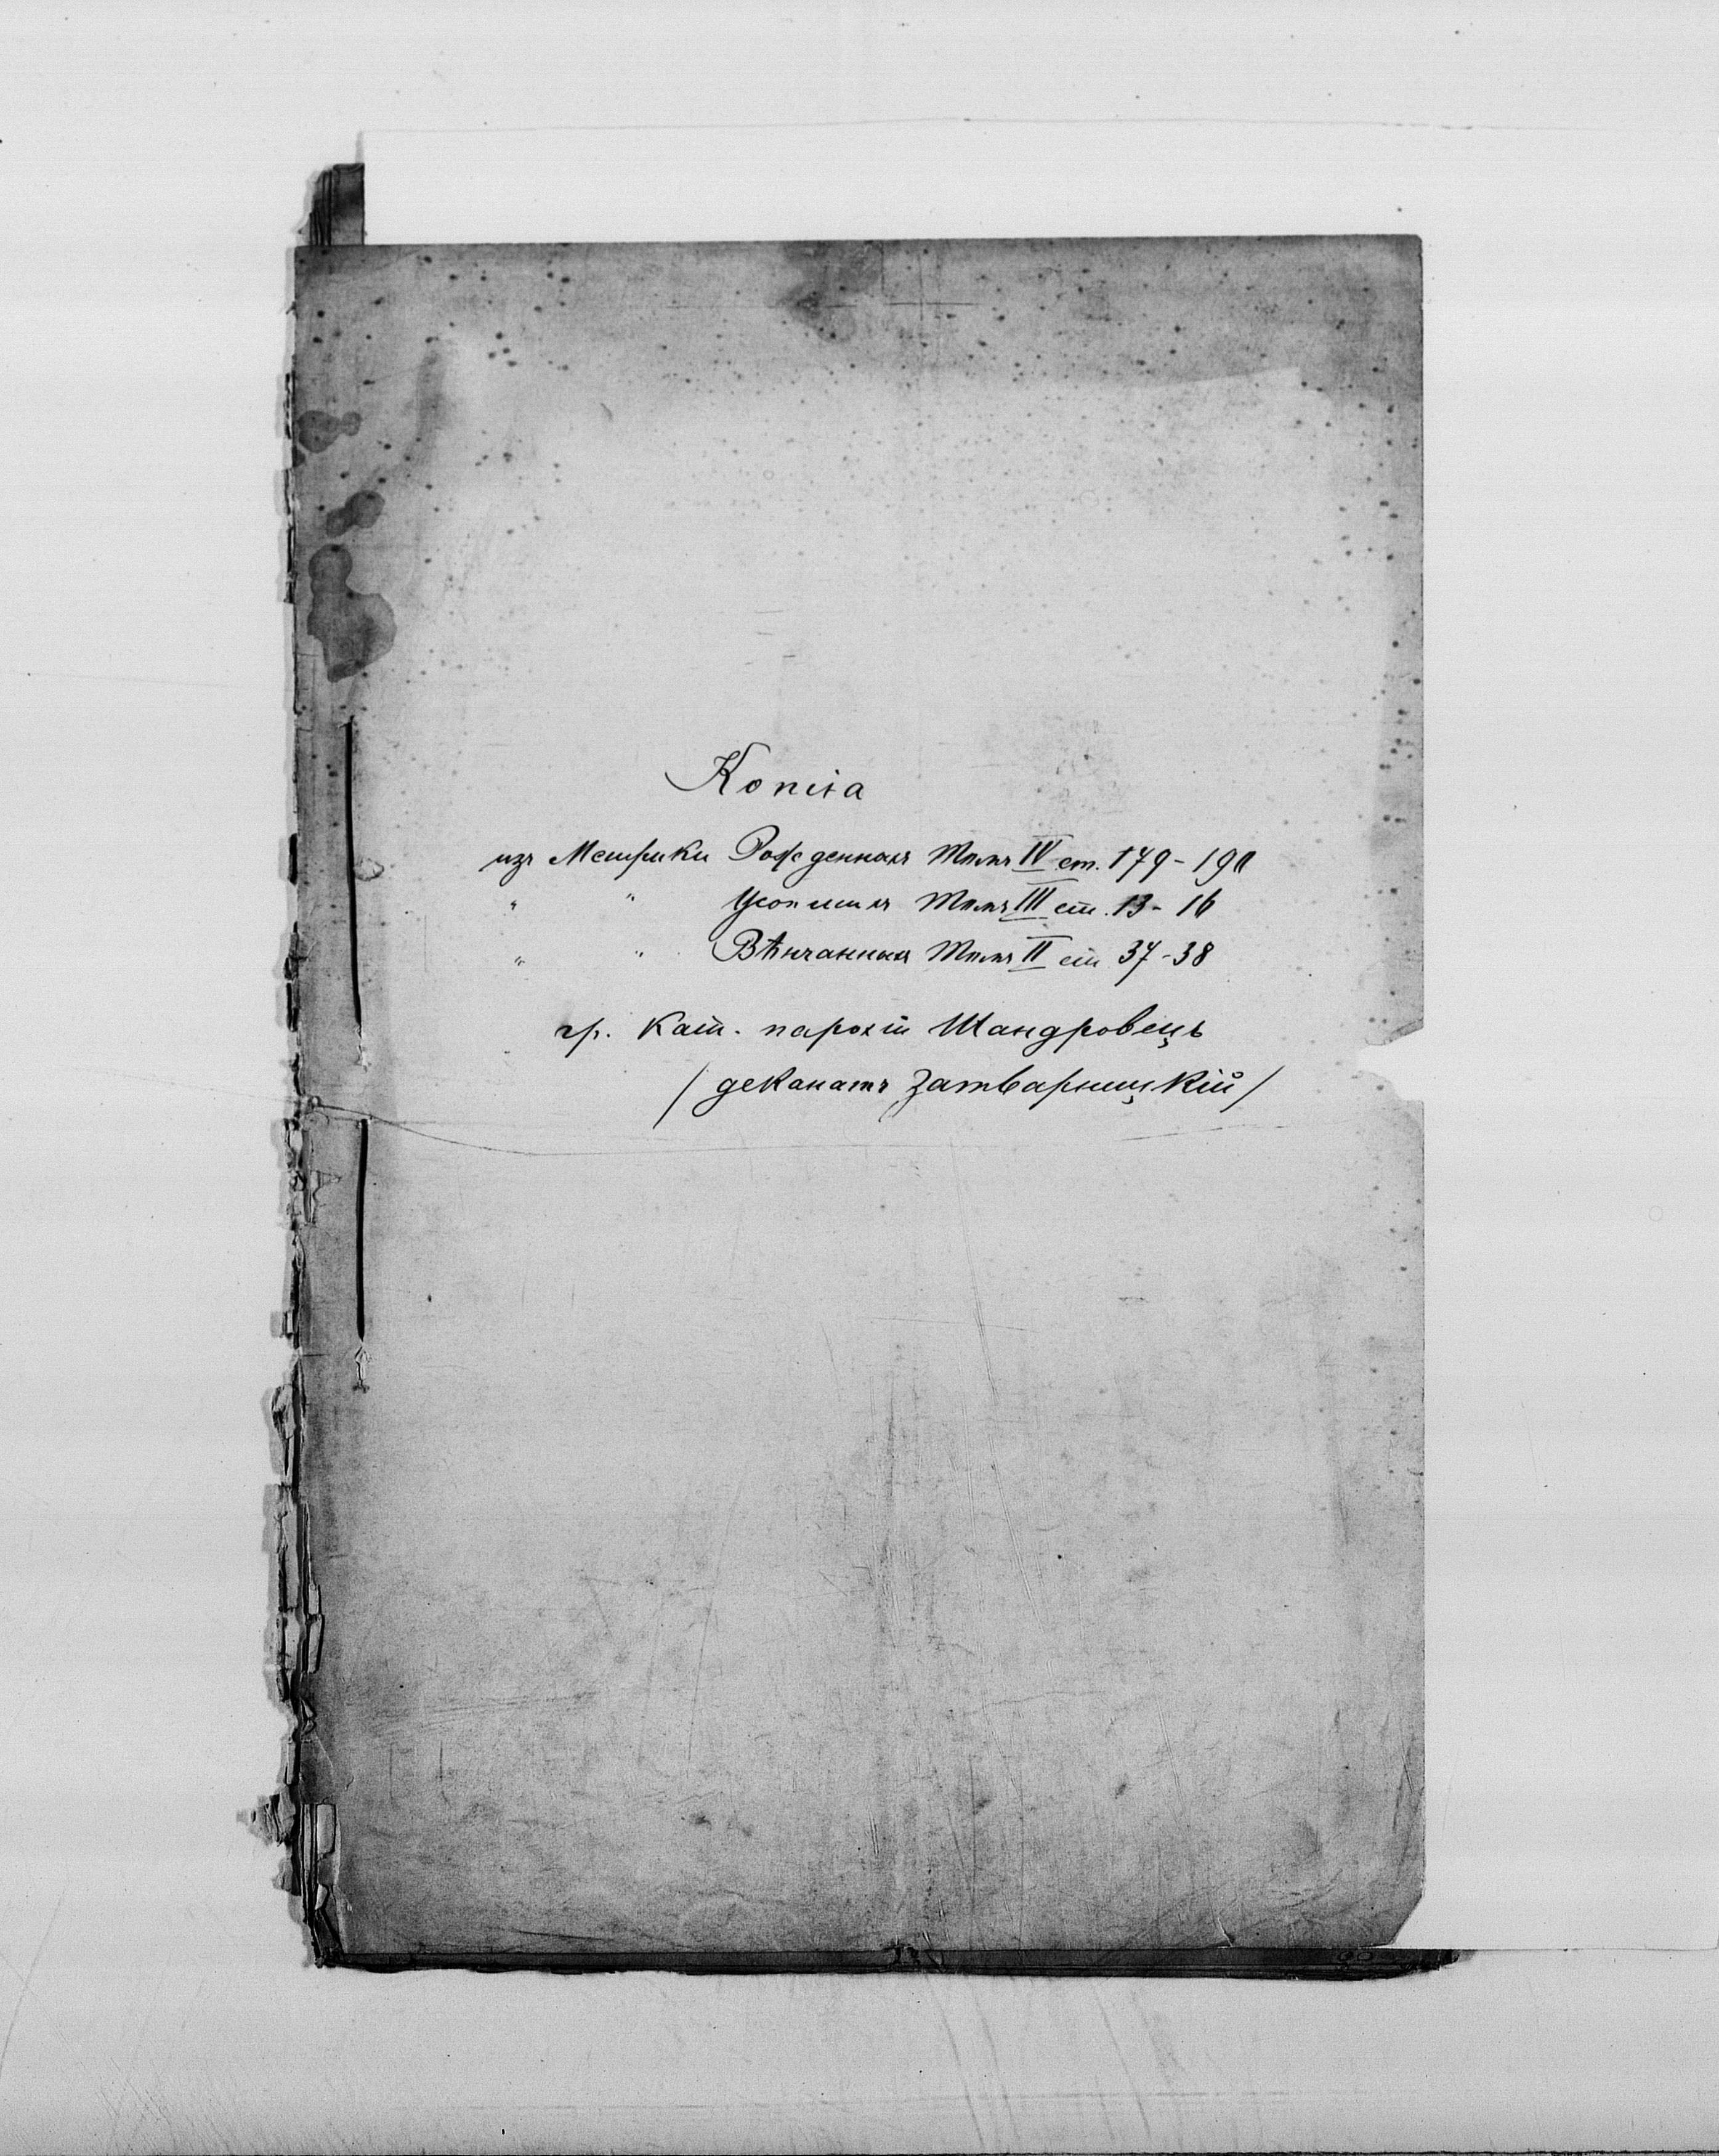 Копіа
изъ Метрики Рожденныхъ Томъ IV ст. 179-190
" " Усопшихъ Томъ III ст. 13-16
" " Вѣнчанныхъ Томъ II ст 37-38
гр. кат. парохіи Шандровець
/деканатъ Затварницкій/